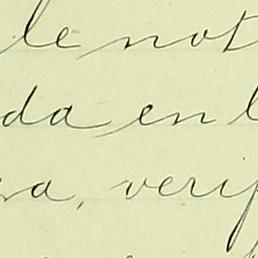 le not
da en l
a, verif